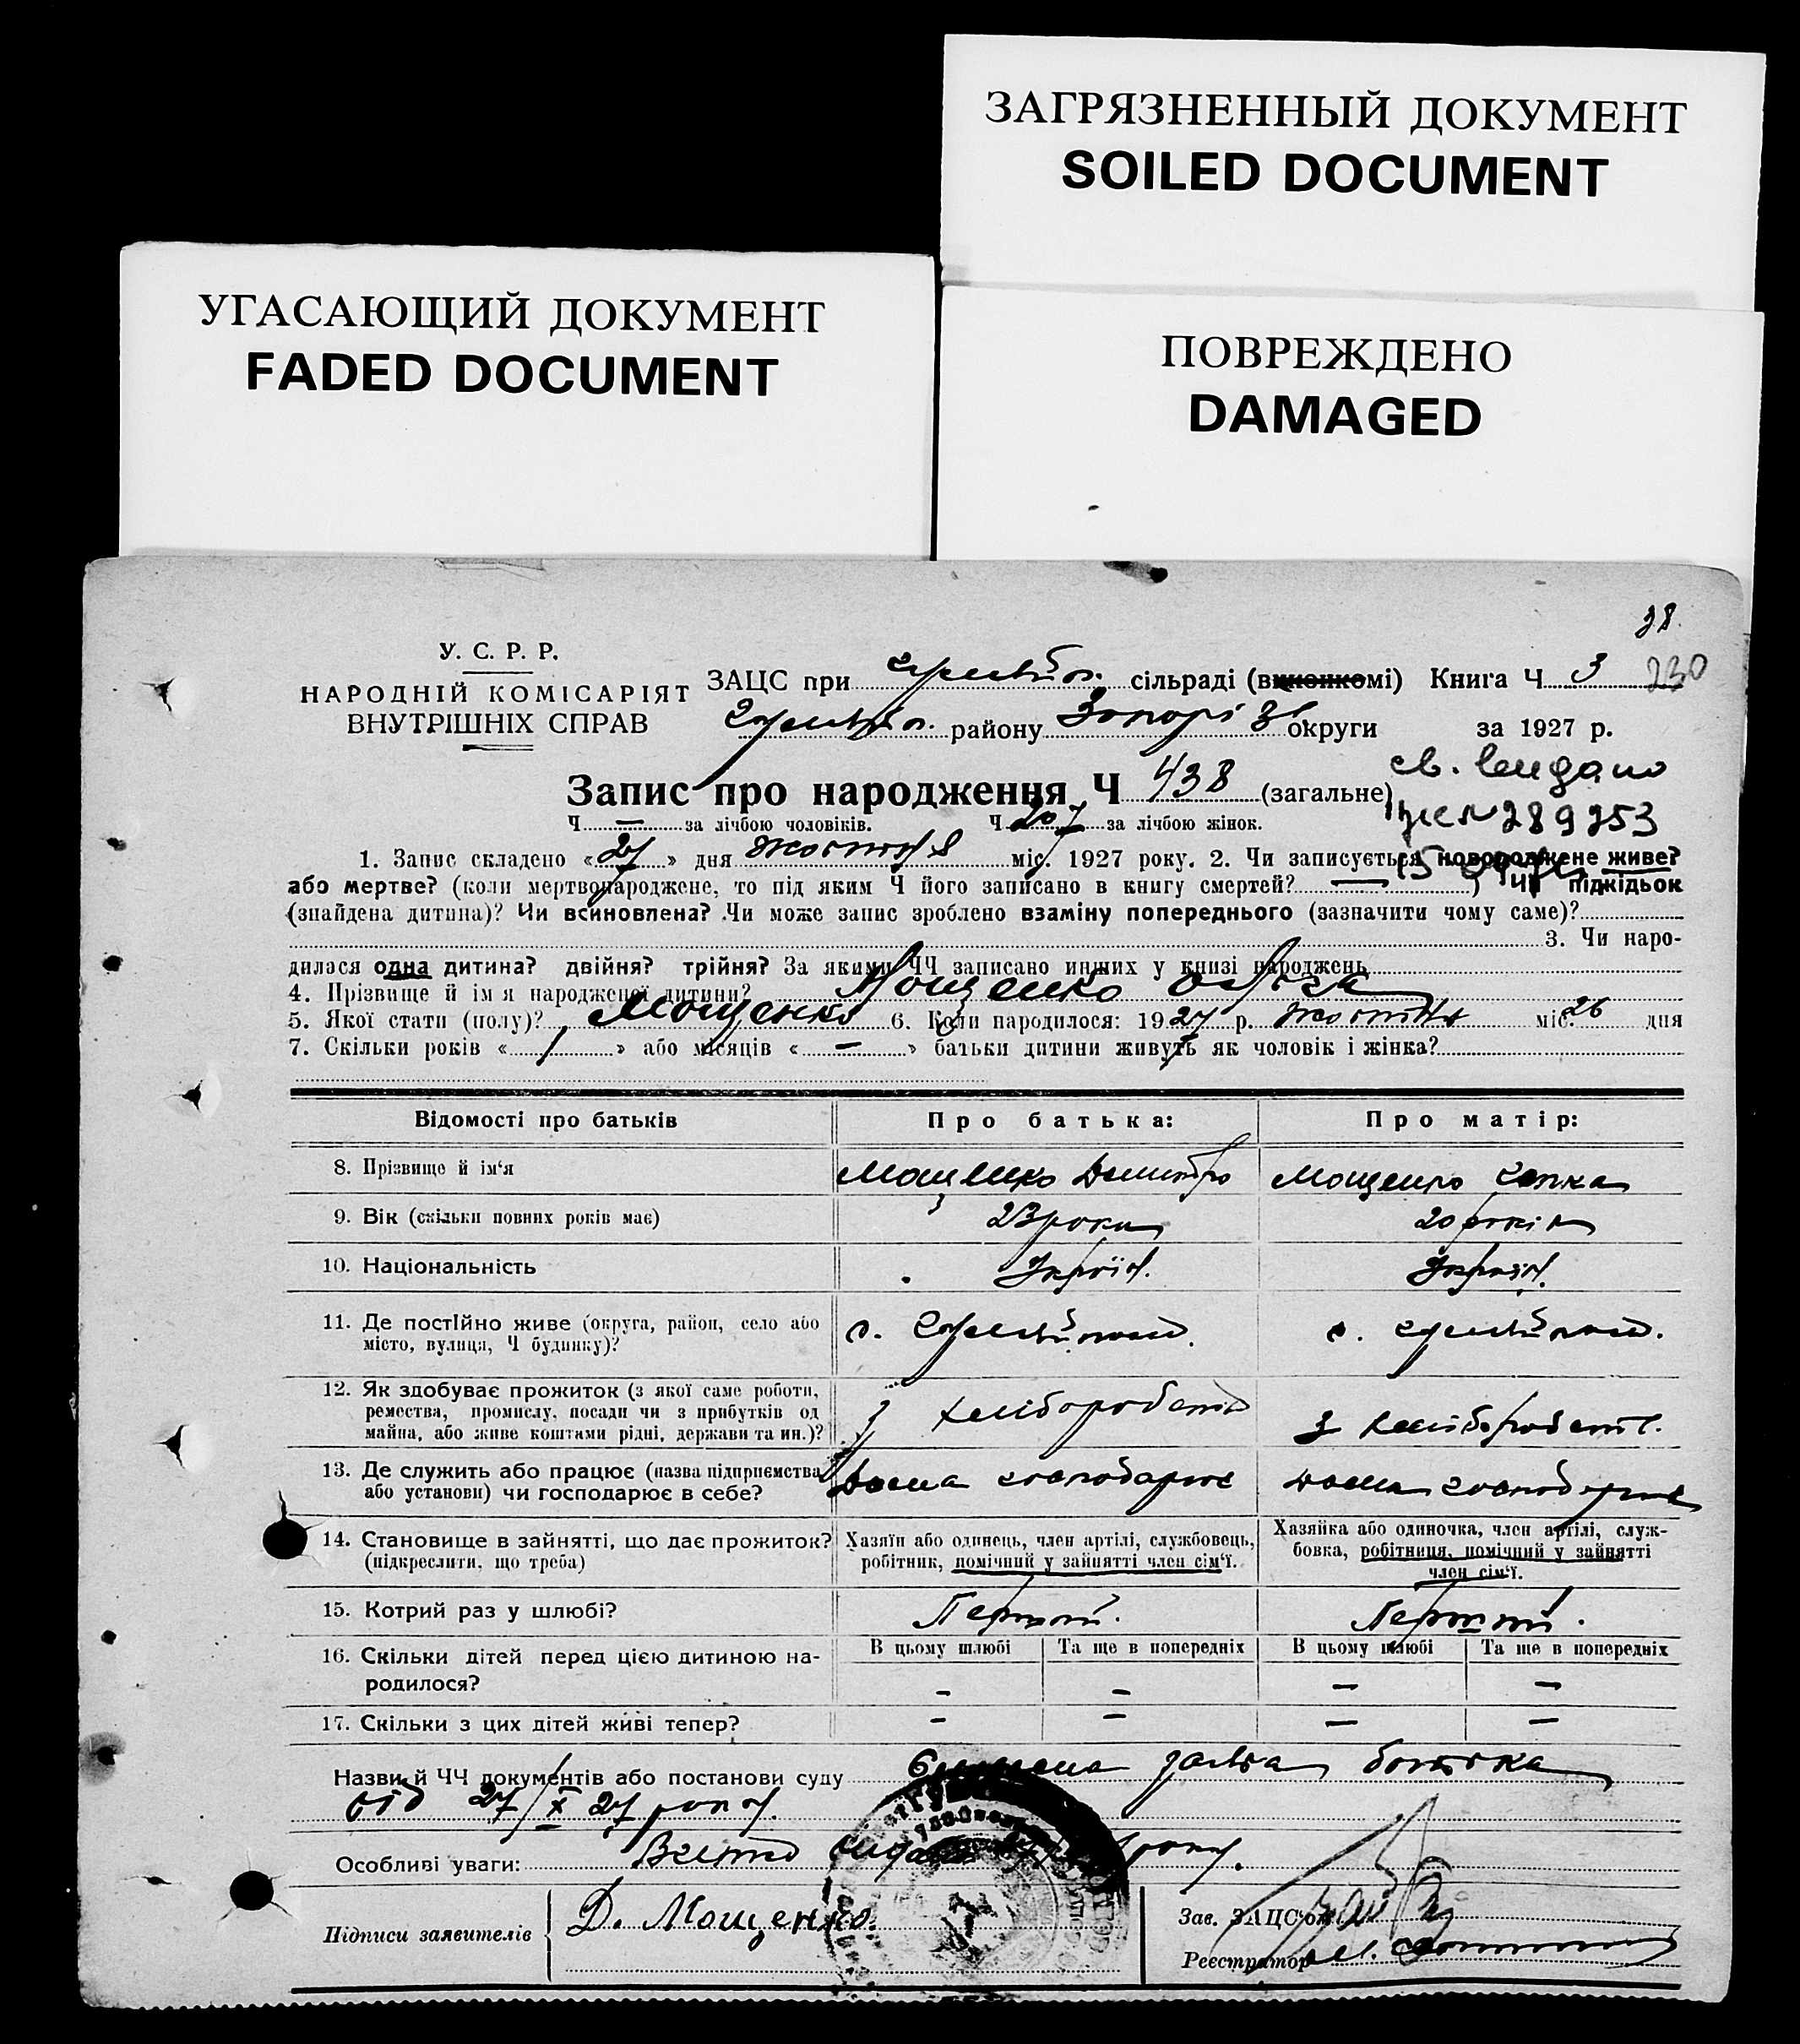 ЗАГРЯЗНЕННЫЙ ДОКУМЕНТ
SOILED DOCUMENT
УГАСАЮЩИЙ ДОКУМЕНТ
FADED DOCUMENT
ПОВРЕЖДЕНО
DAMAGED
У. С. Р. Р.
НАРОДНІЙ КОМІСАРІЯТ
ВНУТРІШНІХ СПРАВ
ЗАЦС при сільраді (виконкомі) Книга Ч 3 230
району Запоріз округи за 1927 р.
Запис про народження Ч 438 (загальне)
св. видано
№ 289253
Ч — за лічбою чоловіків. Ч 207 за лічбою жінок.
1. Запис складено «27» дня жовтня міс. 1927 року. 2. Чи записується новороджене живе?
або мертве? (коли мертвонароджене, то під яким Ч його записано в книгу смертей? — ) Чи підкідьок
(знайдена дитина)? Чи всиновлена? Чи може запис зроблено взаміну попереднього (зазначити чому саме)?
3. Чи наро-
дилася одна дитина? двійня? трійня? За якими ЧЧ записано инших у книзі народжень
4. Прізвище й ім я народженої дитини? Мощенко Ольга
5. Якої стати (полу)? Мощенко 6. Коли народилося: 1927 р. жовтня міс. 26 дня
7. Скільки років « 1 » або місяців « — » батьки дитини живуть як чоловік і жінка?
Відомості про батьків Про батька: Про матір:
8. Прізвище й ім'я Мощенко Дмитро Мощенко
9. Вік (скільки повних років має) 23 роки 20 років
10. Національність Україн. Україн.
11. Де постійно живе (округа, район, село або
місто, вулиця, Ч будинку)? с. с.
12. Як здобуває прожиток (з якої саме роботи,
ремества, промислу, посади чи з прибутків од
майна, або живе коштами рідні, держави та ин.)? з хліборобства з хліборобств.
13. Де служить або працює (назва підприємства
або установи) чи господарює в себе? Дома господарює Дома господарює
14. Становище в зайнятті, що дає прожиток?
(підкреслити, що треба)
Хазяїн або одинець, член артілі, службовець,
робітник, помічний у зайнятті член сім'ї.
Хазяйка або одиночка, член артілі, служ-
бовка, робітниця, помічний у зайнятті
член сім'ї.
15. Котрий раз у шлюбі? Перший. Перший.
16. Скільки дітей перед цією дитиною на-
родилося?
В цьому шлюбі Та ще в попередніх В цьому шлюбі Та ще в попередніх
— — — —
17. Скільки з цих дітей живі тепер? — — — —
Назви й ЧЧ документів або постанови суду заява батька
від 27/X 27 року.
Особливі уваги: року.
Підписи заявителів Д. Мощенко.
Зав. ЗАЦС'ом
Реєстратор